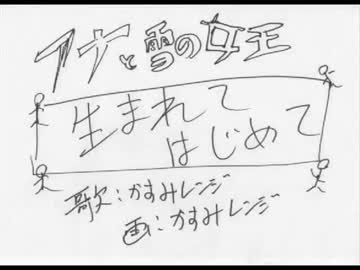 アナと雪の女王
生まれて
はじめて
歌:かすみレンジ
画:かすみレンジ